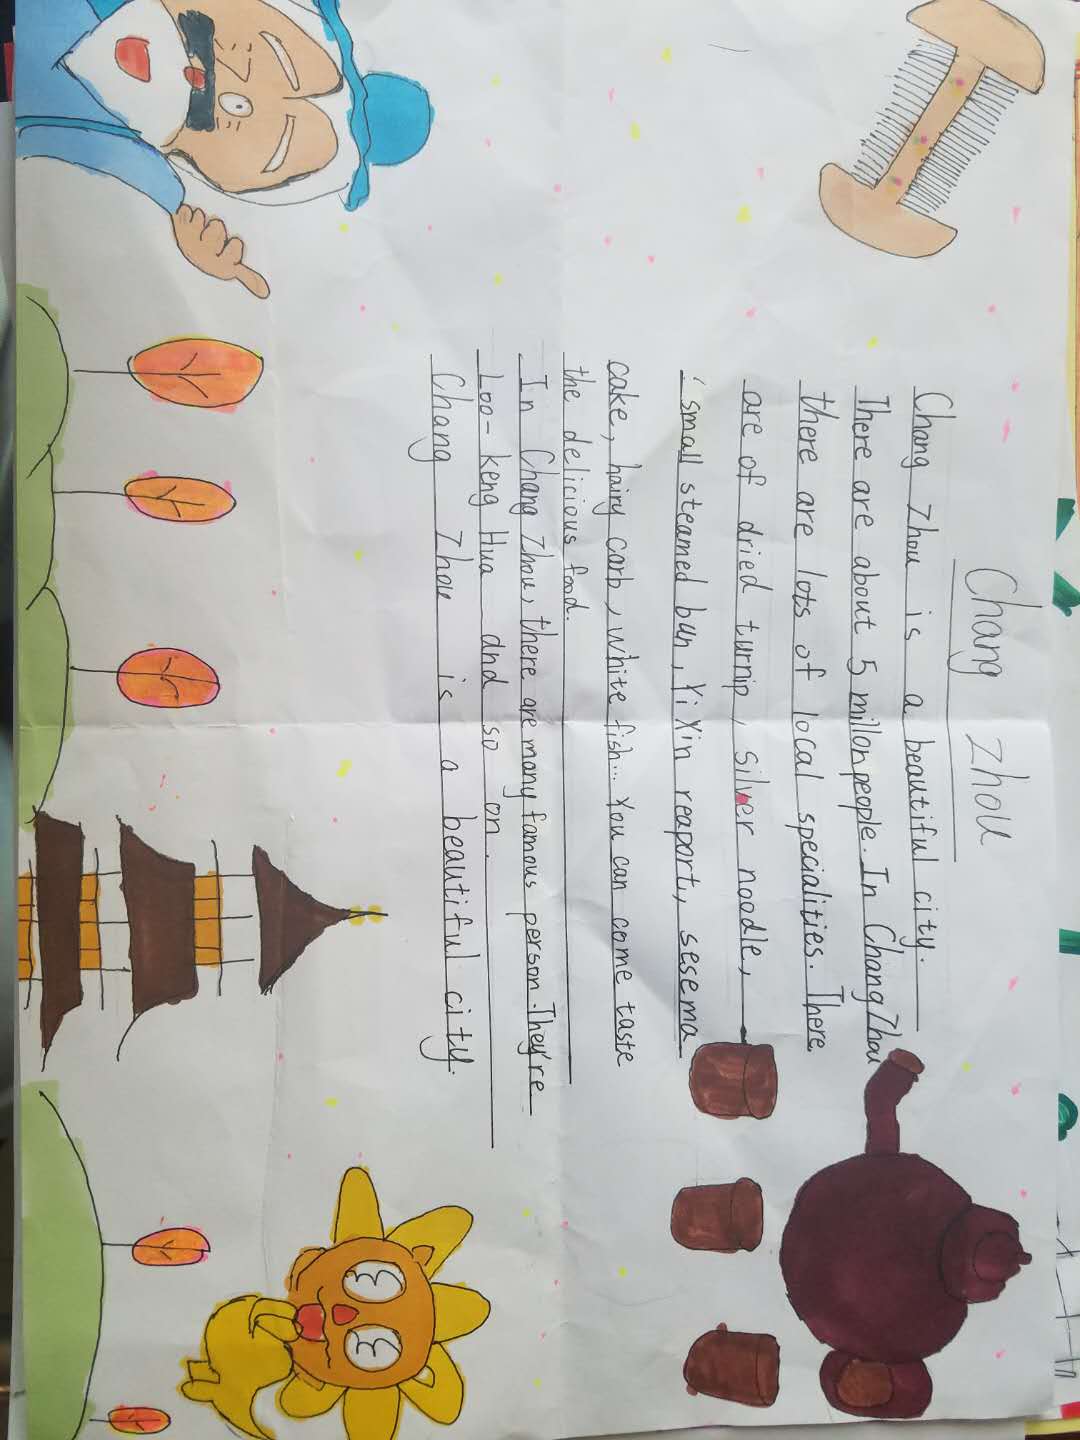 Chang Zhou
Chang Zhou is a beautiful city.
There are about 5 millon people. In Chang Zhou
there are lots of local specialities. There
are of dried turnip, silver noodle,
small steamed bun, Yi Xin reaport, sesema
cake, hairy carb, white fish... You can come taste
the delicious food.
In Chang Zhou, there are many famous person. They're
Loo-keng Hua and so on.
Chang Zhou is a beautiful city.